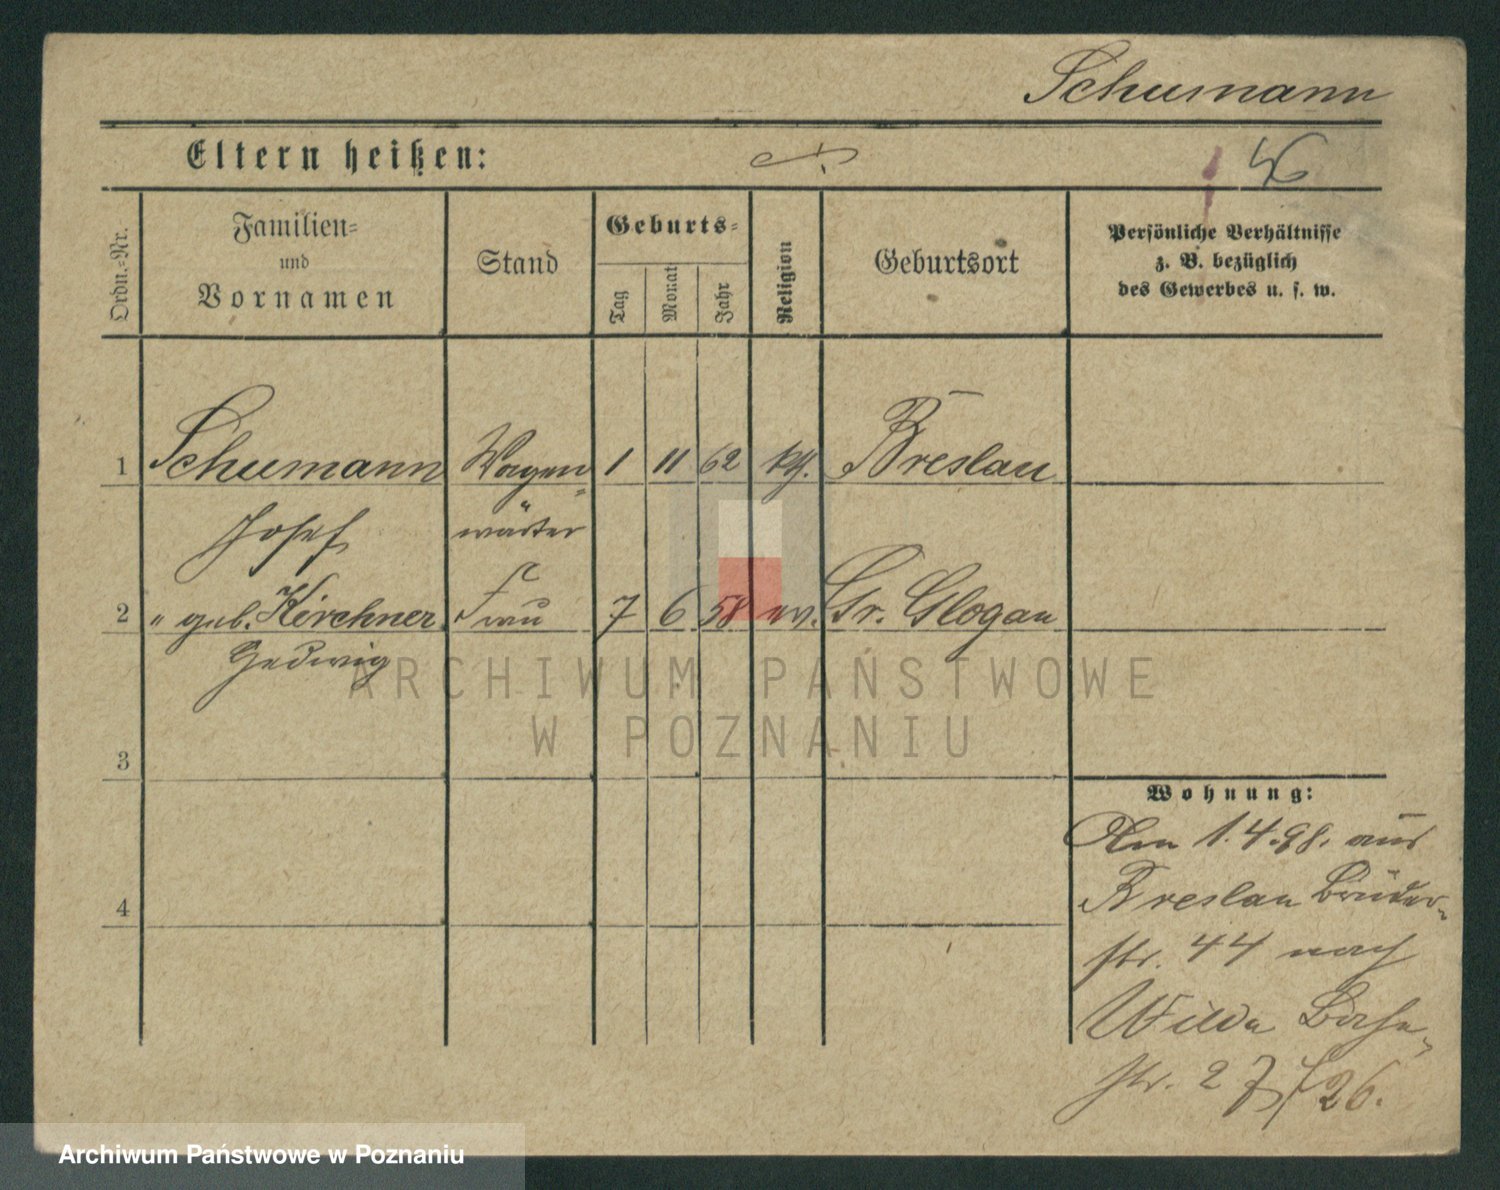 Schumann
Eltern heißen:
46
Ordn.-Nr.
Familien-
und
Vornamen
Stand
Geburts-
Tag
Monat
Jahr
Religion
Geburtsort
Persönliche Verhältnisse
z. B. bezüglich
des Gewerbes u. s. w.
1 Schumann Wagen= 1 11 62 kth. Breslau
Josef wärter
2 " geb. Kirchner Frau 7 6 58 ev. Gr. Glogau
Hedwig
ARCHIWUM PAŃSTWOWE
W POZNANIU
3
4
Wohnung:
Am 1.4.98. aus
Breslau Brüder-
str. 44 nach
Wilda Bahn-
str. 27/26.
Archiwum Państwowe w Poznaniu